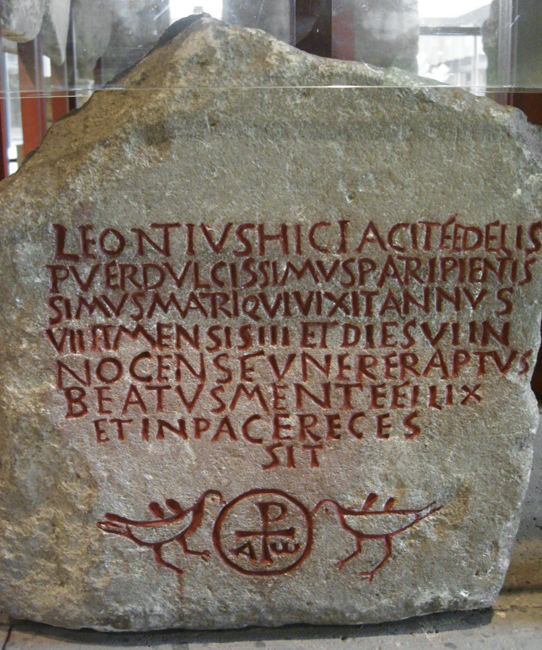 LEONTIVSHICIACITFEDELIS
PVERDVLCISSIMVSPATRIPIENTIS
SIMVSMATRIQVIVIXITANNVS
VIIETMENSISIIIETDIESVIIN
NOCENSFVNERERAPTVS
BEATVSMENTEFELIX
ETINPACERECES
SIT
Α ω